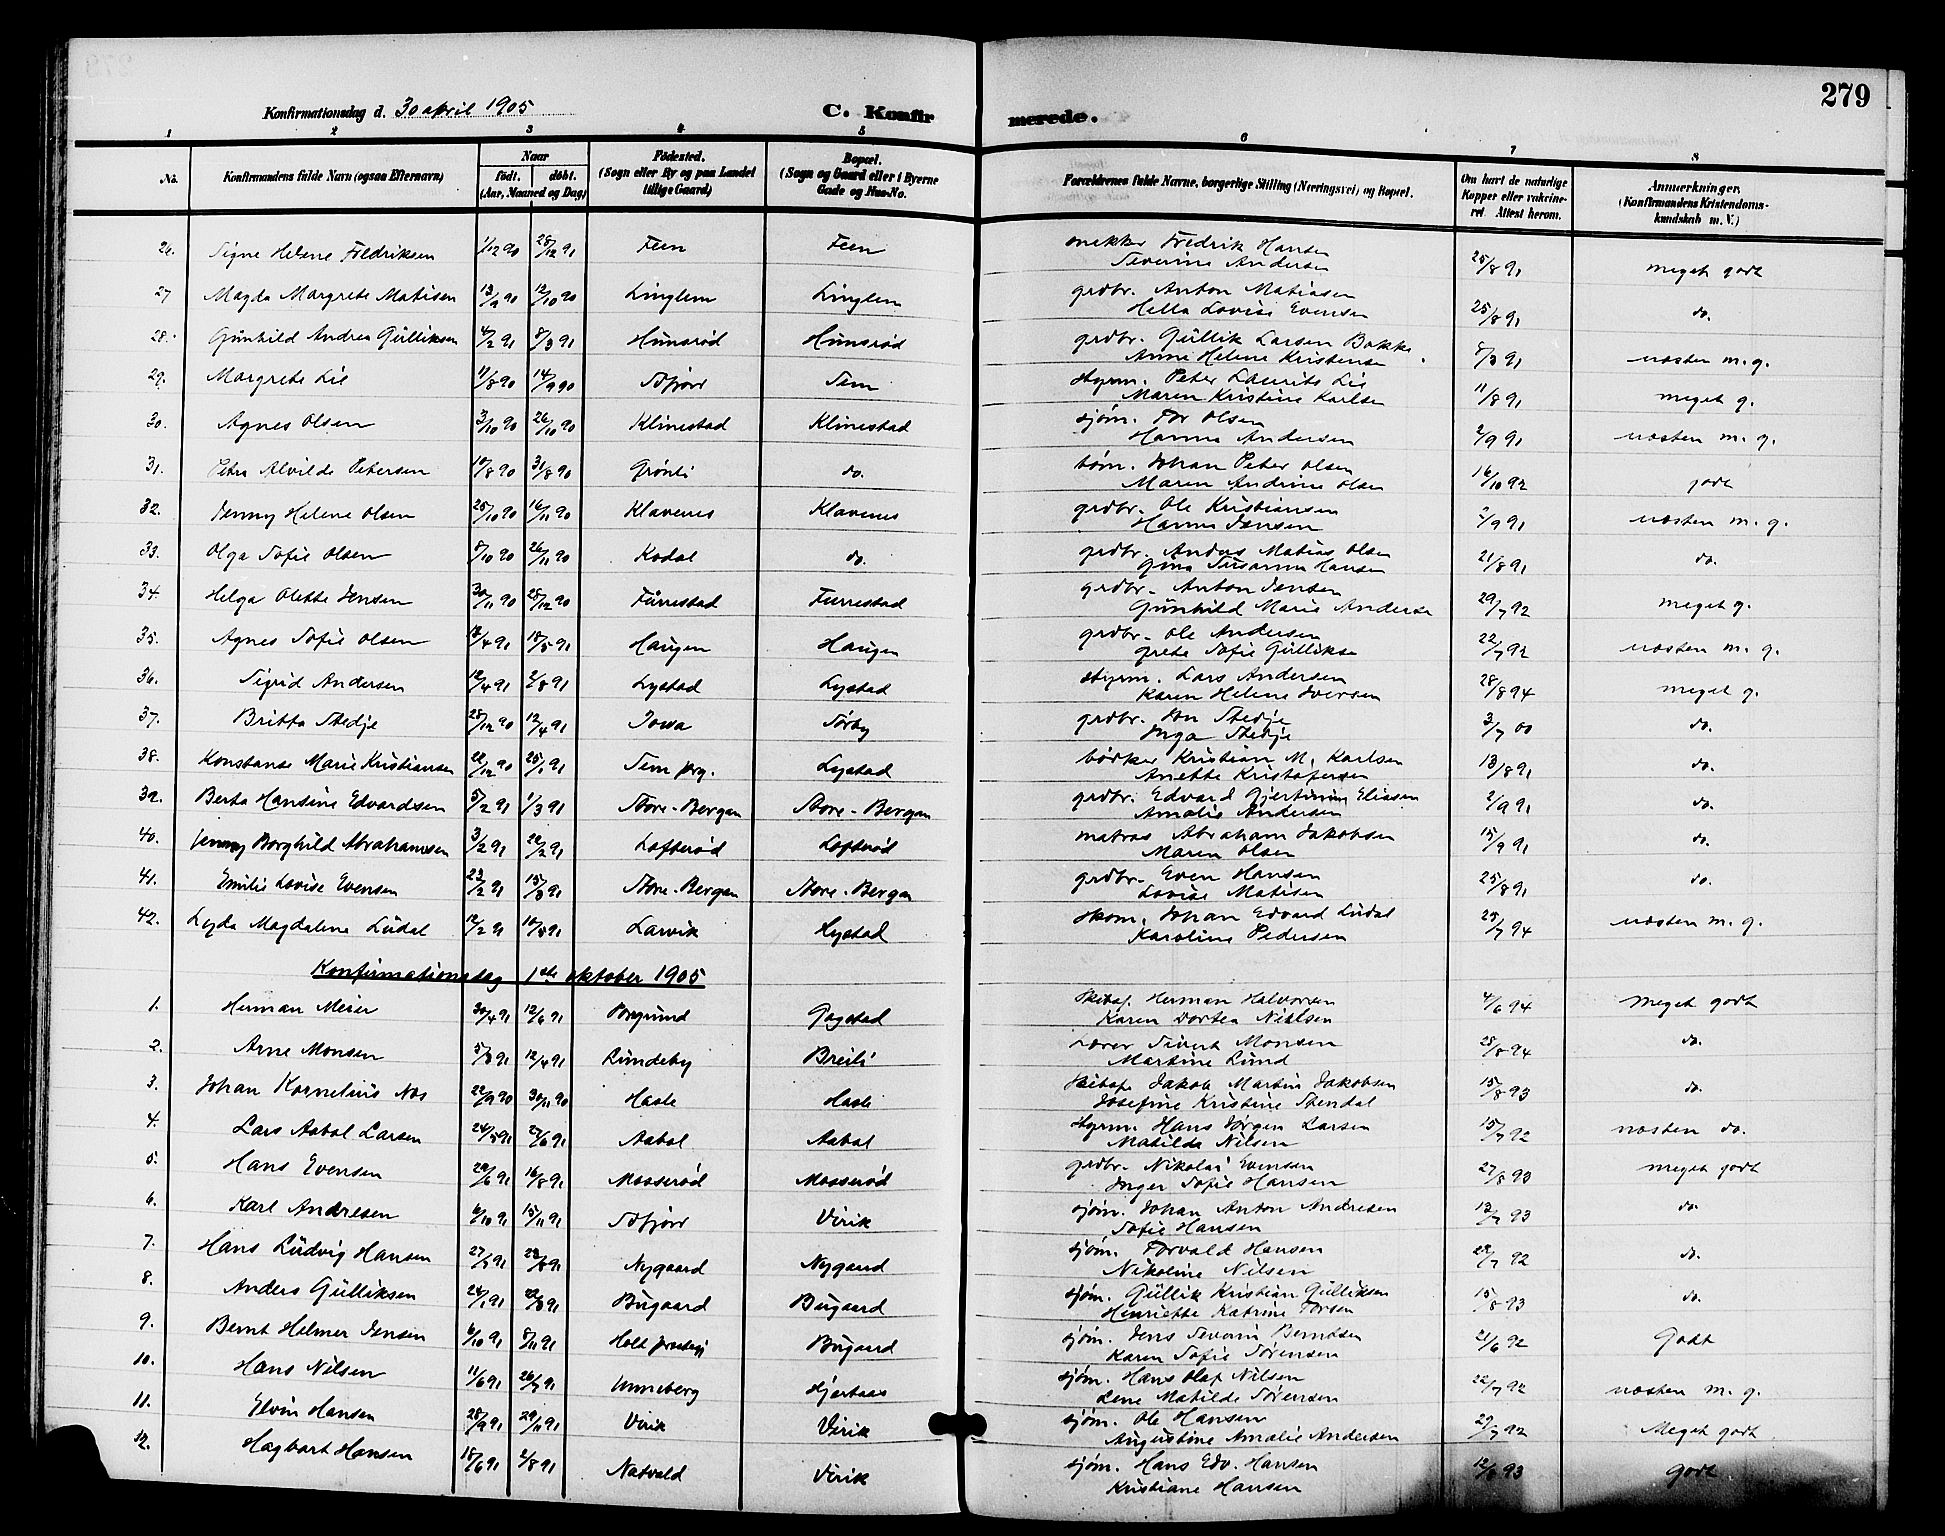 279
Konfirmationsdag d. 30 april 1905 C. Konfirmerede.
1 2 3 4 5 6 7 8
No. Konfirmandens fulde Navn (ogsaa Efternavn) Naar født. døbt. (Aar, Maaned og Dag) Fødested. (Sogn eller By og paa Landet tillige Gaard) Bopæl. (Sogn og Gaard eller i Byerne Gade og Hus-No. Forældrenes fulde Navne, borgerlige Stilling (Næringsvei) og Bopæl. Om havt de naturlige Kopper eller vakcineret. Attest herom. Anmerkninger. (Konfirmandens Kristendomskundskab m. V.)
26. Signe Helene Fredriksen 1/12 90 28/12 91 Feen Feen snekker Fredrik Hansen 25/8 91 meget godt
Severine Andersen
27 Magda Margrete Matisen 13/9 90 12/10 90 Linglem Linglem grdbr. Anton Matiasen 25/8 91 do.
Hella Lovise Evensen
28. Günhild Andrea Gülliksen 4/2 91 8/3 91 Hünsrød Hünsrød grdbr. Güllik Larsen Bakke 8/3 91 næsten m. g.
Anne Helene Kristensen
29. Margrete Lie 11/8 90 14/9 90 Sem styrm. Peter Laurits Lie 11/8 91 meget g.
Maren Kristine Karlsen
30. Agnes Olsen 3/10 90 26/10 90 Klinestad Klinestad sjøm. Tor Olsen 2/9 91 næsten m. g.
Hanna Andersen
31. Petra Alvilde Petersen 10/8 90 31/8 90 Grønli do. tøm. Johan Peter Olsen 16/10 92 godt
Maren Andrine Olsen
32. Jenny Helene Olsen 25/10 90 16/11 90 Klavenes Klavenes grdbr. Ole Kristiansen 2/9 91 næsten m. g.
Hanna Jensen
33. Olga Sofie Olsen 8/10 90 26/11 90 Kodal do. grdbr. Anders Matias Olsen 21/8 91 do.
Gina Susanna Hansen
34. Helga Olette Jensen 30/11 90 28/12 90 Fürrestad Furrestad grdbr. Anton Jensen 29/7 92 meget g.
Günhild Marie Anderse
35. Agnes Sofie Olsen 12/4 91 18/5 91 Haugen Haugen grdbr. Ole Andersen 22/7 92 næsten m. g.
Grete Sofie Gullikse
36. Sigrid Andersen 12/4 91 2/8 91 Lystad Lystad styrm. Lars Andersen 28/8 94 meget g.
Karen Helene Iversen
37. Britta Stedje 28/12 90 12/4 91 Iowa Sørby grdbr. Jon Stedje 3/7 00 do.
Inga Stedje
38. Konstanse Marie Kristiansen 22/12 90 25/1 91 Sem prg. Lystad bødker Kristian M. Karlsen 13/8 91 do.
Anette Kristofersen
39. Berta Hansine Edvardsen 5/2 91 1/3 91 Store-Bergan Store-Bergan grdbr. Edvard Gjertinius Eliasen 2/9 91 do.
Amalie Andersen
40. Jenny Borghild Abrahamsen 3/2 91 22/2 91 Lofterød Lofterød matros Abraham Jakobsen 15/9 91 do.
Maren Olsen
41. Emilie Lovise Evensen 23/2 91 15/3 91 Store-Bergan Store-Bergan grdbr. Even Hansen 25/8 91 do.
Lovise Matisen
42. Lyda Magdalena Lüdal 12/2 91 10/5 91 Larvik Lystad skom. Johan Edvard Lüdal 25/7 94 næsten m. g.
Karoline Pedersen
Konfirmationsdag 1ste oktober 1905
1. Herman Meier 30/4 91 12/6 91 Porsgrund Gogstad skibsf. Herman Halvorsen 4/6 94 meget godt
Karen Dortea Nielsen
2. Arne Monsen 5/3 91 12/4 91 Lündeby Breili Lærer Sivert Monsen 28/8 94 do.
Martine Lund
3. Johan Kornelius Næs 22/9 90 30/11 90 Hasle Hasle skibsf. Jakob Martin Jakobsen 15/8 93 do.
Josefine Kristine Stendal
4. Lars Aabol Larsen 24/5 91 27/6 91 Aabol Aabol styrm. Hans Jørgen Larsen 15/7 92 næsten do.
Matilde Nilsen
5. Hans Evensen 20/6 91 16/8 91 Mosserød Mosserød grdbr. Nikolai Evensen 27/8 93 meget godt
Inger Sofie Hansen
6. Karl Andresen 6/10 91 15/11 91 Virik sjøm. Johan Anton Andresen 12/7 93 do.
Sofie Hansen
7. Hans Lüdvig Hansen 27/5 91 23/8 91 Nygaard Nygaard sjøm. Torvald Hansen 22/7 92 do.
Nikoline Nilsen
8. Anders Gülliksen 24/1 91 22/3 91 Bügaard Bügaard sjøm. Güllik Kristian Gülliksen 15/8 93 do.
Henriette Katrine Torsen
9. Bernt Hilmer Jensen 6/10 91 8/11 91 Holt prstgj Bügaard sjøm. Jens Severin Berntsen 21/6 92 Godt
Karen Sofie Sørensen
10. Hans Nilsen 11/6 91 26/7 91 Unneberg Hjertaas sjøm. Hans Olaf Nilsen 22/7 92 næsten m. g.
Lene Matilde Sørensen
11. Elvin Hansen 28/9 91 29/11 91 Virik Virik sjøm. Ole Hansen 29/7 92 Meget godt
Augustine Amalie Andersen
12. Hagbart Hansen 18/6 91 2/8 91 Natvald Virik sjøm. Hans Edv. Hansen 12/8 93 Godt
Kristiane Hansen